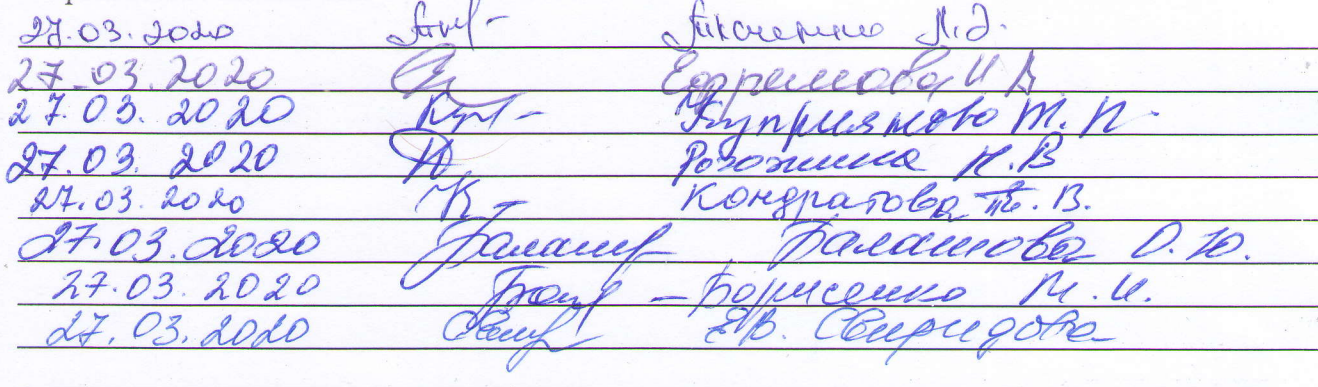 27.03.2020 Л.Д.
27.03.2020 Ефремова И В
27.03.2020 Куприянова Т.П.
27.03.2020 Рогожина Н.В
27.03.2020 Кондратова Т.В.
27.03.2020 Балашова О.Ю.
27.03.2020 Борисенко М.И.
27.03.2020 Е.В. Свиридова